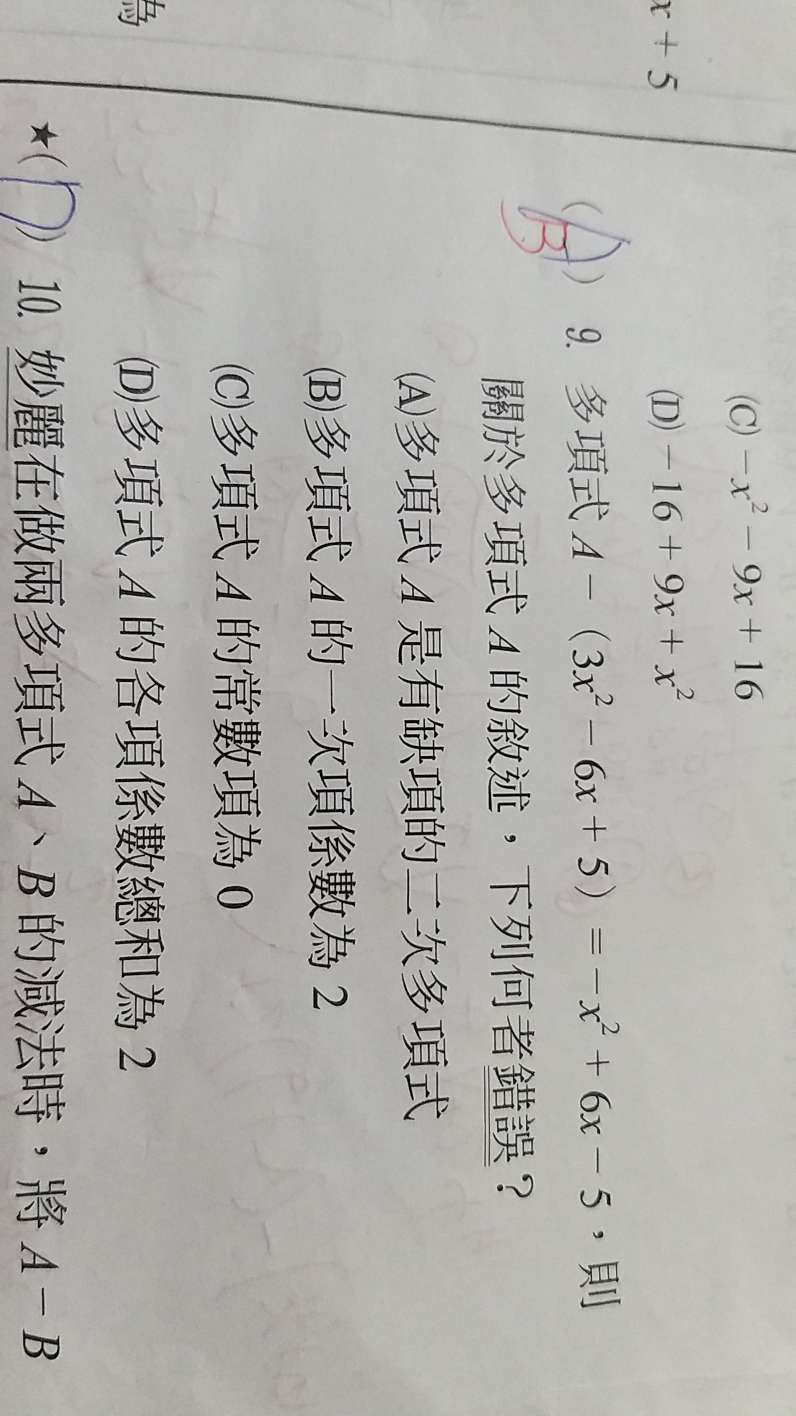 x + 5
為
(C) －x² － 9x + 16
(D) －16 + 9x + x²
( A B ) 9. 多項式 A －（3x² － 6x + 5）= －x² + 6x － 5，則
關於多項式 A 的敘述，下列何者錯誤？
(A)多項式 A 是有缺項的二次多項式
(B)多項式 A 的一次項係數為 2
(C)多項式 A 的常數項為 0
(D)多項式 A 的各項係數總和為 2
★( D ) 10. 妙麗在做兩多項式 A、B 的減法時，將 A － B